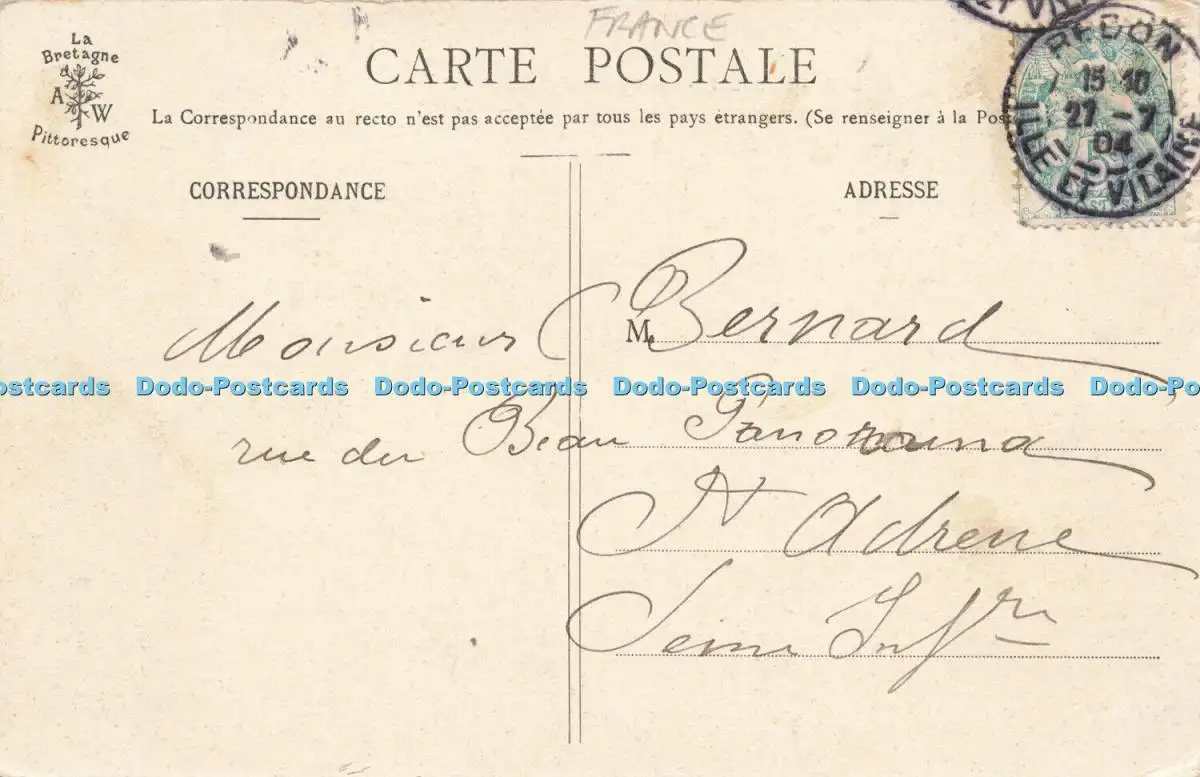 FRANCE
La
Bretagne
A W
Pittoresque
CARTE POSTALE
La Correspondance au recto n'est pas acceptée par tous les pays étrangers. (Se renseigner à la Pos
CORRESPONDANCE
ADRESSE
REDON
15 10
27 - 7
04
ILLE ET VILAINE
Monsieur M. Bernard
Dodo-Postcards Dodo-Postcards Dodo-Postcards Dodo-Postcards
rue du Beau Panorama
St Adresse
Seine Infre